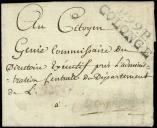 Au Citoyen
Genié Commissaire du
Directoire Executif près l'admini-
tration Centrale du Département
de L
à